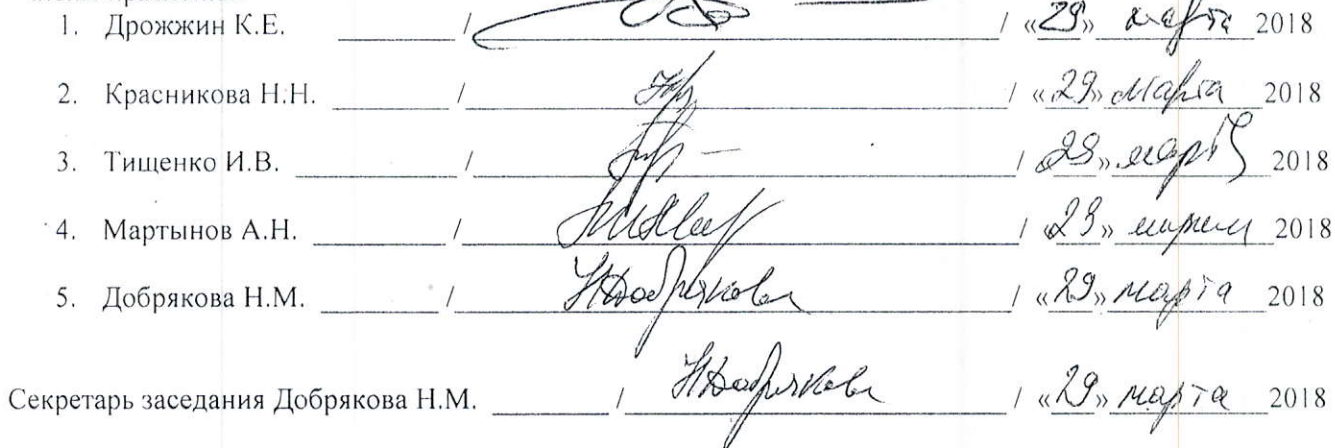 1. Дрожжин К.Е. / / «29» марта 2018
2. Красникова Н.Н. / / «29» марта 2018
3. Тищенко И.В. / / «29» марта 2018
4. Мартынов А.Н. / / «29» марта 2018
5. Добрякова Н.М. / НДобрякова / «29» марта 2018
Секретарь заседания Добрякова Н.М. / НДобрякова / «29» марта 2018